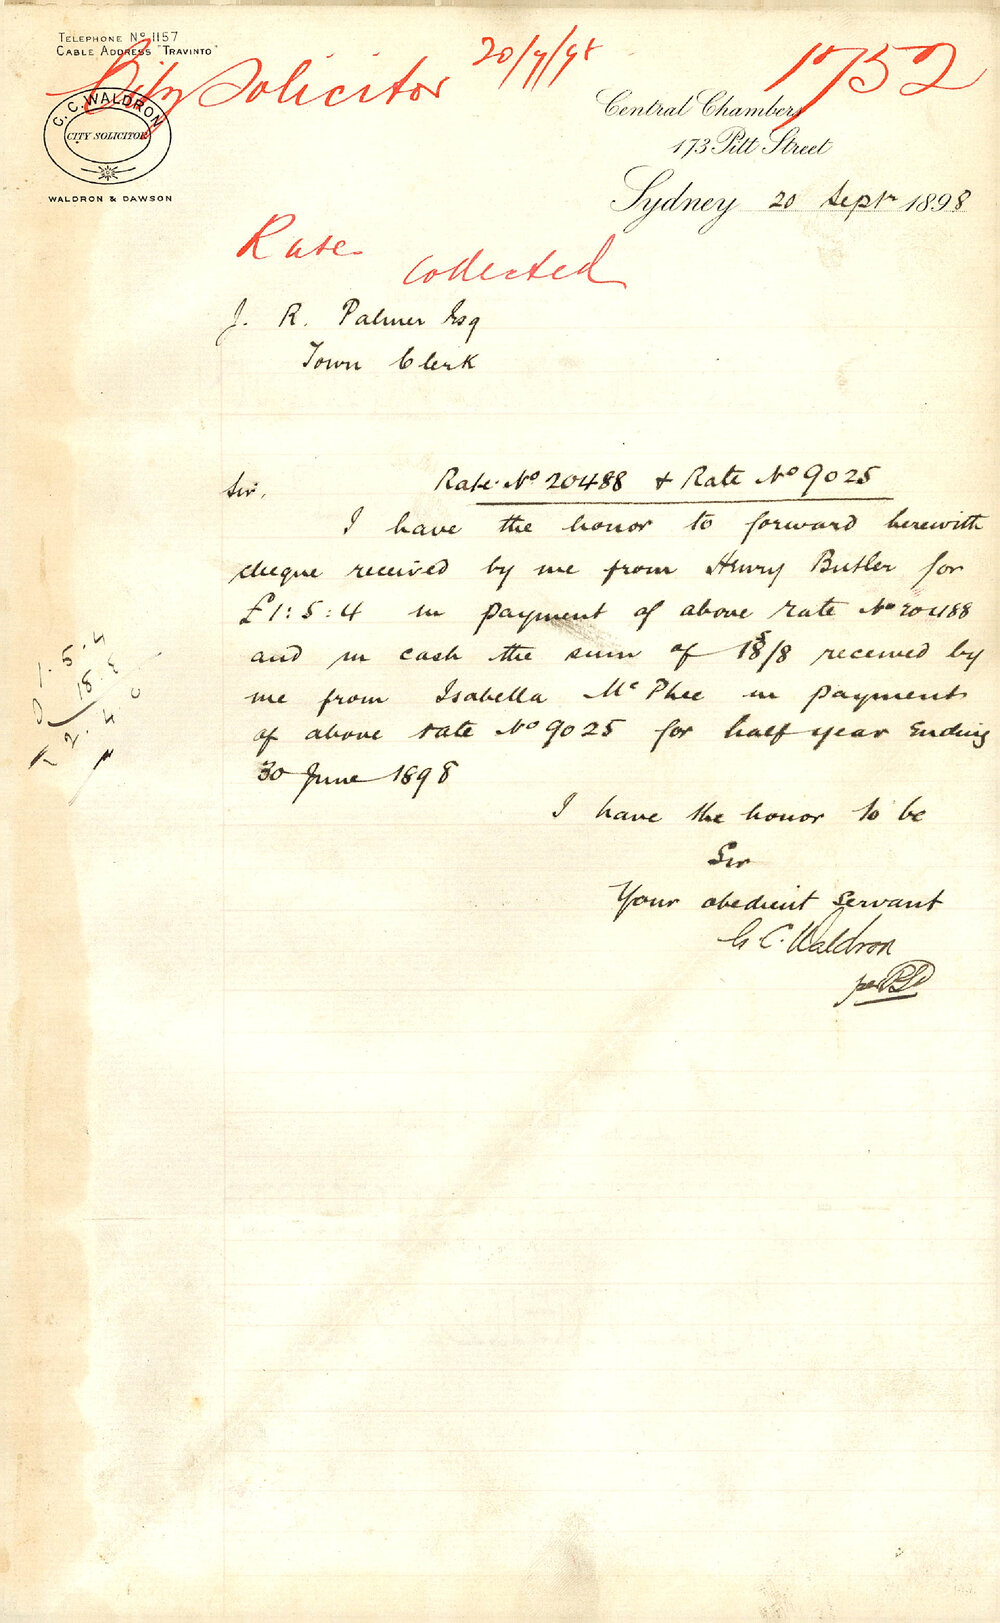 TELEPHONE No 1157
CABLE ADDRESS "TRAVINTO"
City Solicitor 20/9/98
1752
C. C. WALDRON
CITY SOLICITOR
WALDRON & DAWSON
Central Chambers
173 Pitt Street
Sydney 20 Sept 1898
Rates
Collected
J. R. Palmer Esq
Town Clerk
Sir,
Rate No 20488 & Rate No 9025
I have the honor to forward herewith
cheque received by me from Henry Butler for
£1:5:4 in payment of above rate No 20488
and in cash the sum of 18/8 received by
me from Isabella McPhee in payment
of above rate No 9025 for half year Ending
30 June 1898
1. 5. 4
18. 8
2. 4
I have the honor to be
Sir
Your obedient servant
C. Waldron
per